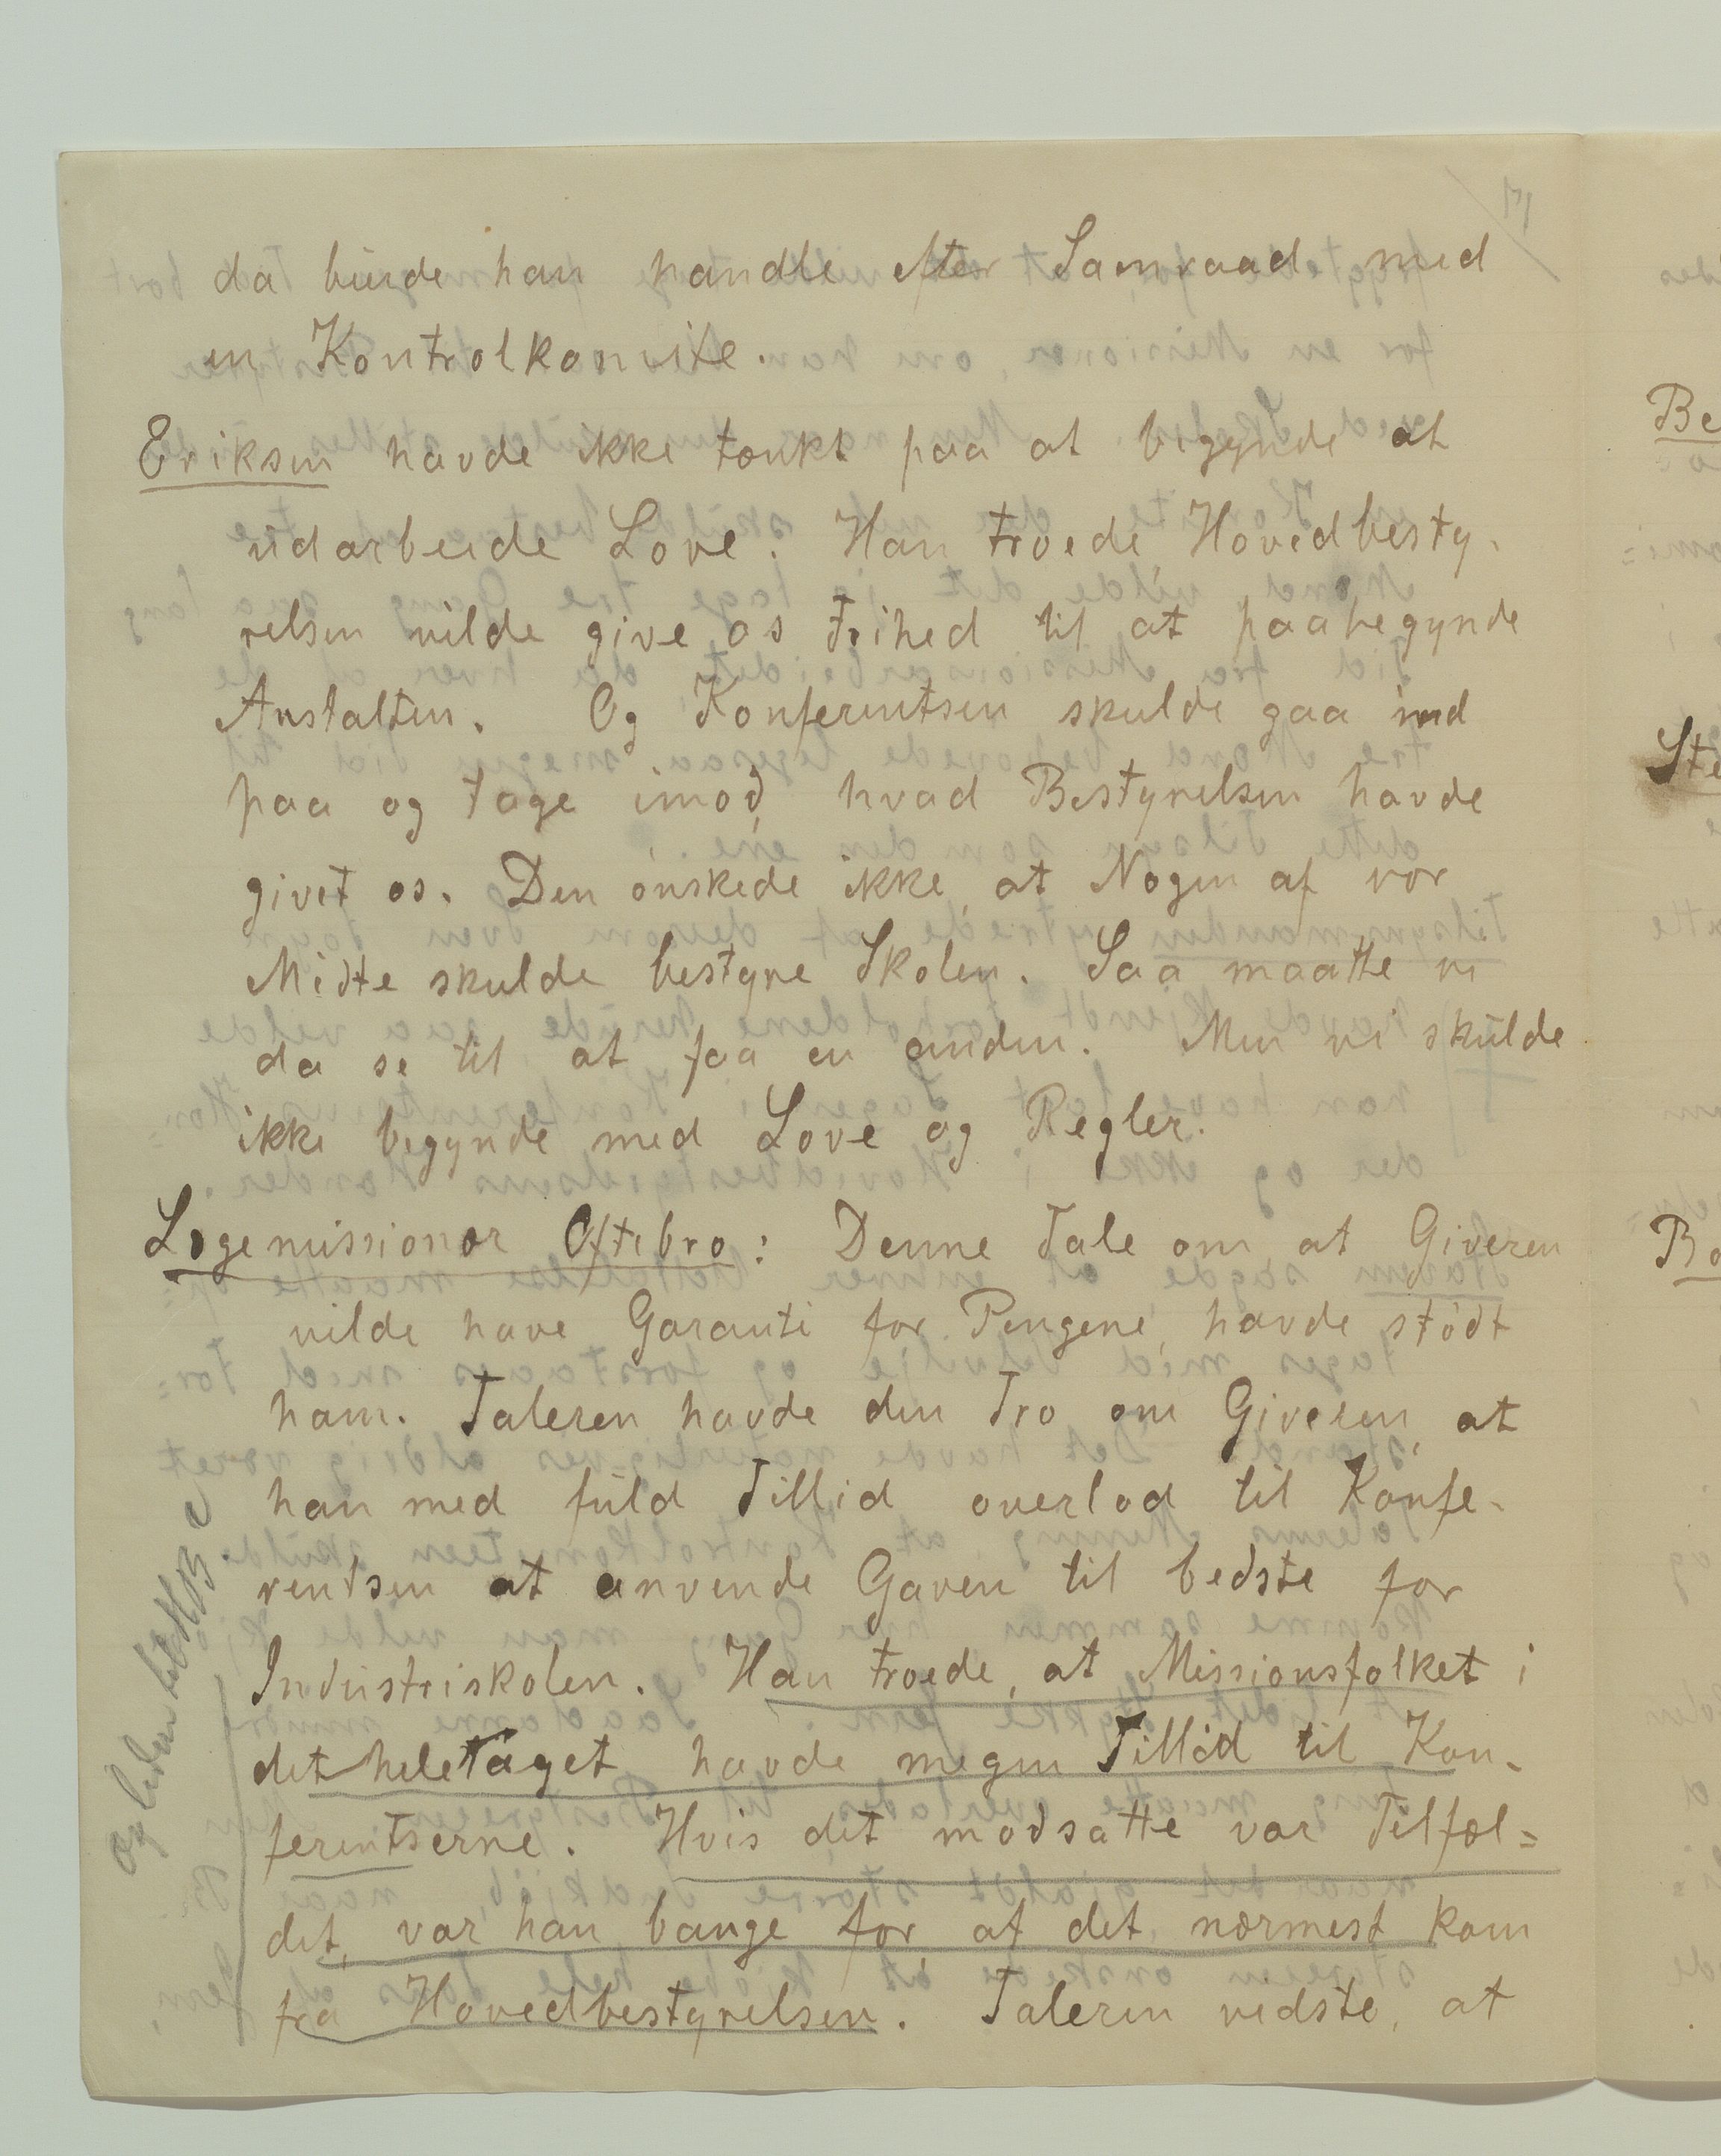 da burde han handle efter Samraad med
en Kontrolkomite.
Eriksen havde ikke tænkt paa at begynde at
udarbeide Love. Han troede, Hovedbesty-
relsen vilde give os Frihed til at paabegynde
Anstalten. Og Konferentsen skulde gaa ind
paa og tage imod, hvad Bestyrelsen havde
givet os. Den ønskede ikke, at Nogen af vor
Midte skulde bestyre Skolen. Saa maatte vi
da se til at faa en anden. Men vi skulde
ikke begynde med Love og Regler.
Lægemissionær Oftebro: Denne Tale om at Giveren
vilde have Garanti for Pengene, havde stødt
ham. Taleren havde den Tro om Giveren, at
han med fuld Tillid overlod til Konfe-
rentsen at anvende Gaven til bedste for
Industriskolen. Han troede, at Missionsfolket i
det heletaget havde megen Tillid til Kon-
ferentserne. Hvis det modsatte var Tilfæl=
det, var han bange for, at det nærmest kom
fra Hovedbestyrelsen. Taleren vidste, at
Be
Ste